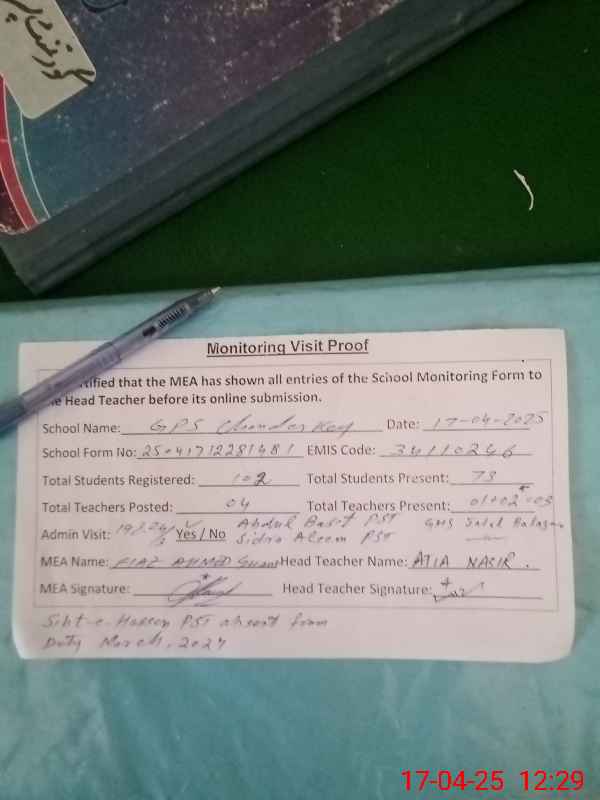 گورنمنٹ
Monitoring Visit Proof
tified that the MEA has shown all entries of the School Monitoring Form to
e Head Teacher before its online submission.
School Name: GPS Chander Date: 17-04-2025
School Form No: 25041712281481 EMIS Code: 34110246
Total Students Registered: 102 Total Students Present: 73
Total Teachers Posted: 04 Total Teachers Present: 01+02=03
Admin Visit: Yes / No Abdul Basit PST GHS
Sidra Aleem PST
MEA Name: FIAZ AHMED Head Teacher Name: ATIA NASIR.
MEA Signature: Head Teacher Signature:
Sibt-e-Hassan PST absent from
Duty March, 2024
17-04-25 12:29